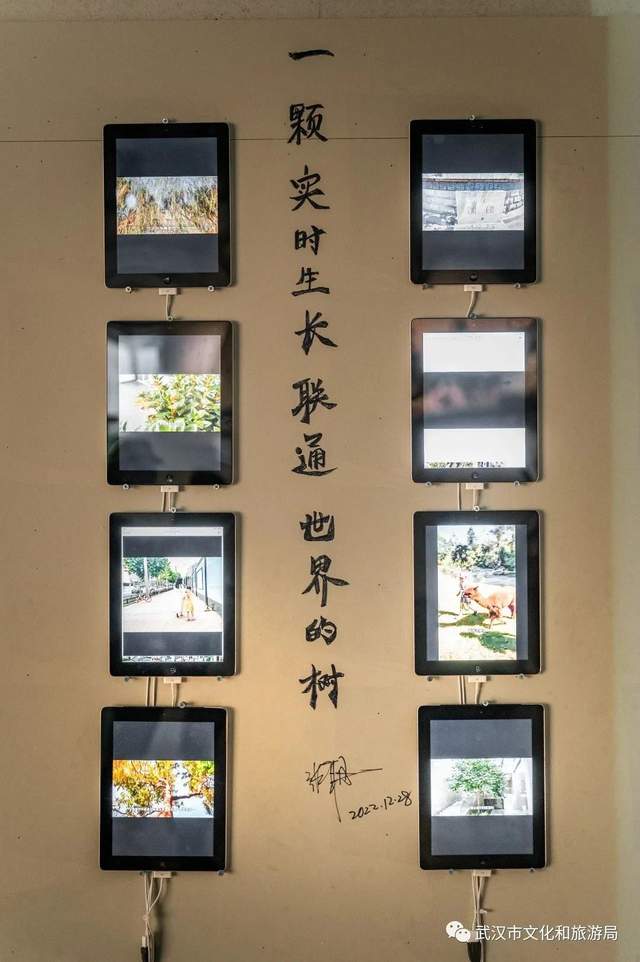 一颗实时生长联通世界的树
2022.12.28
武汉市文化和旅游局